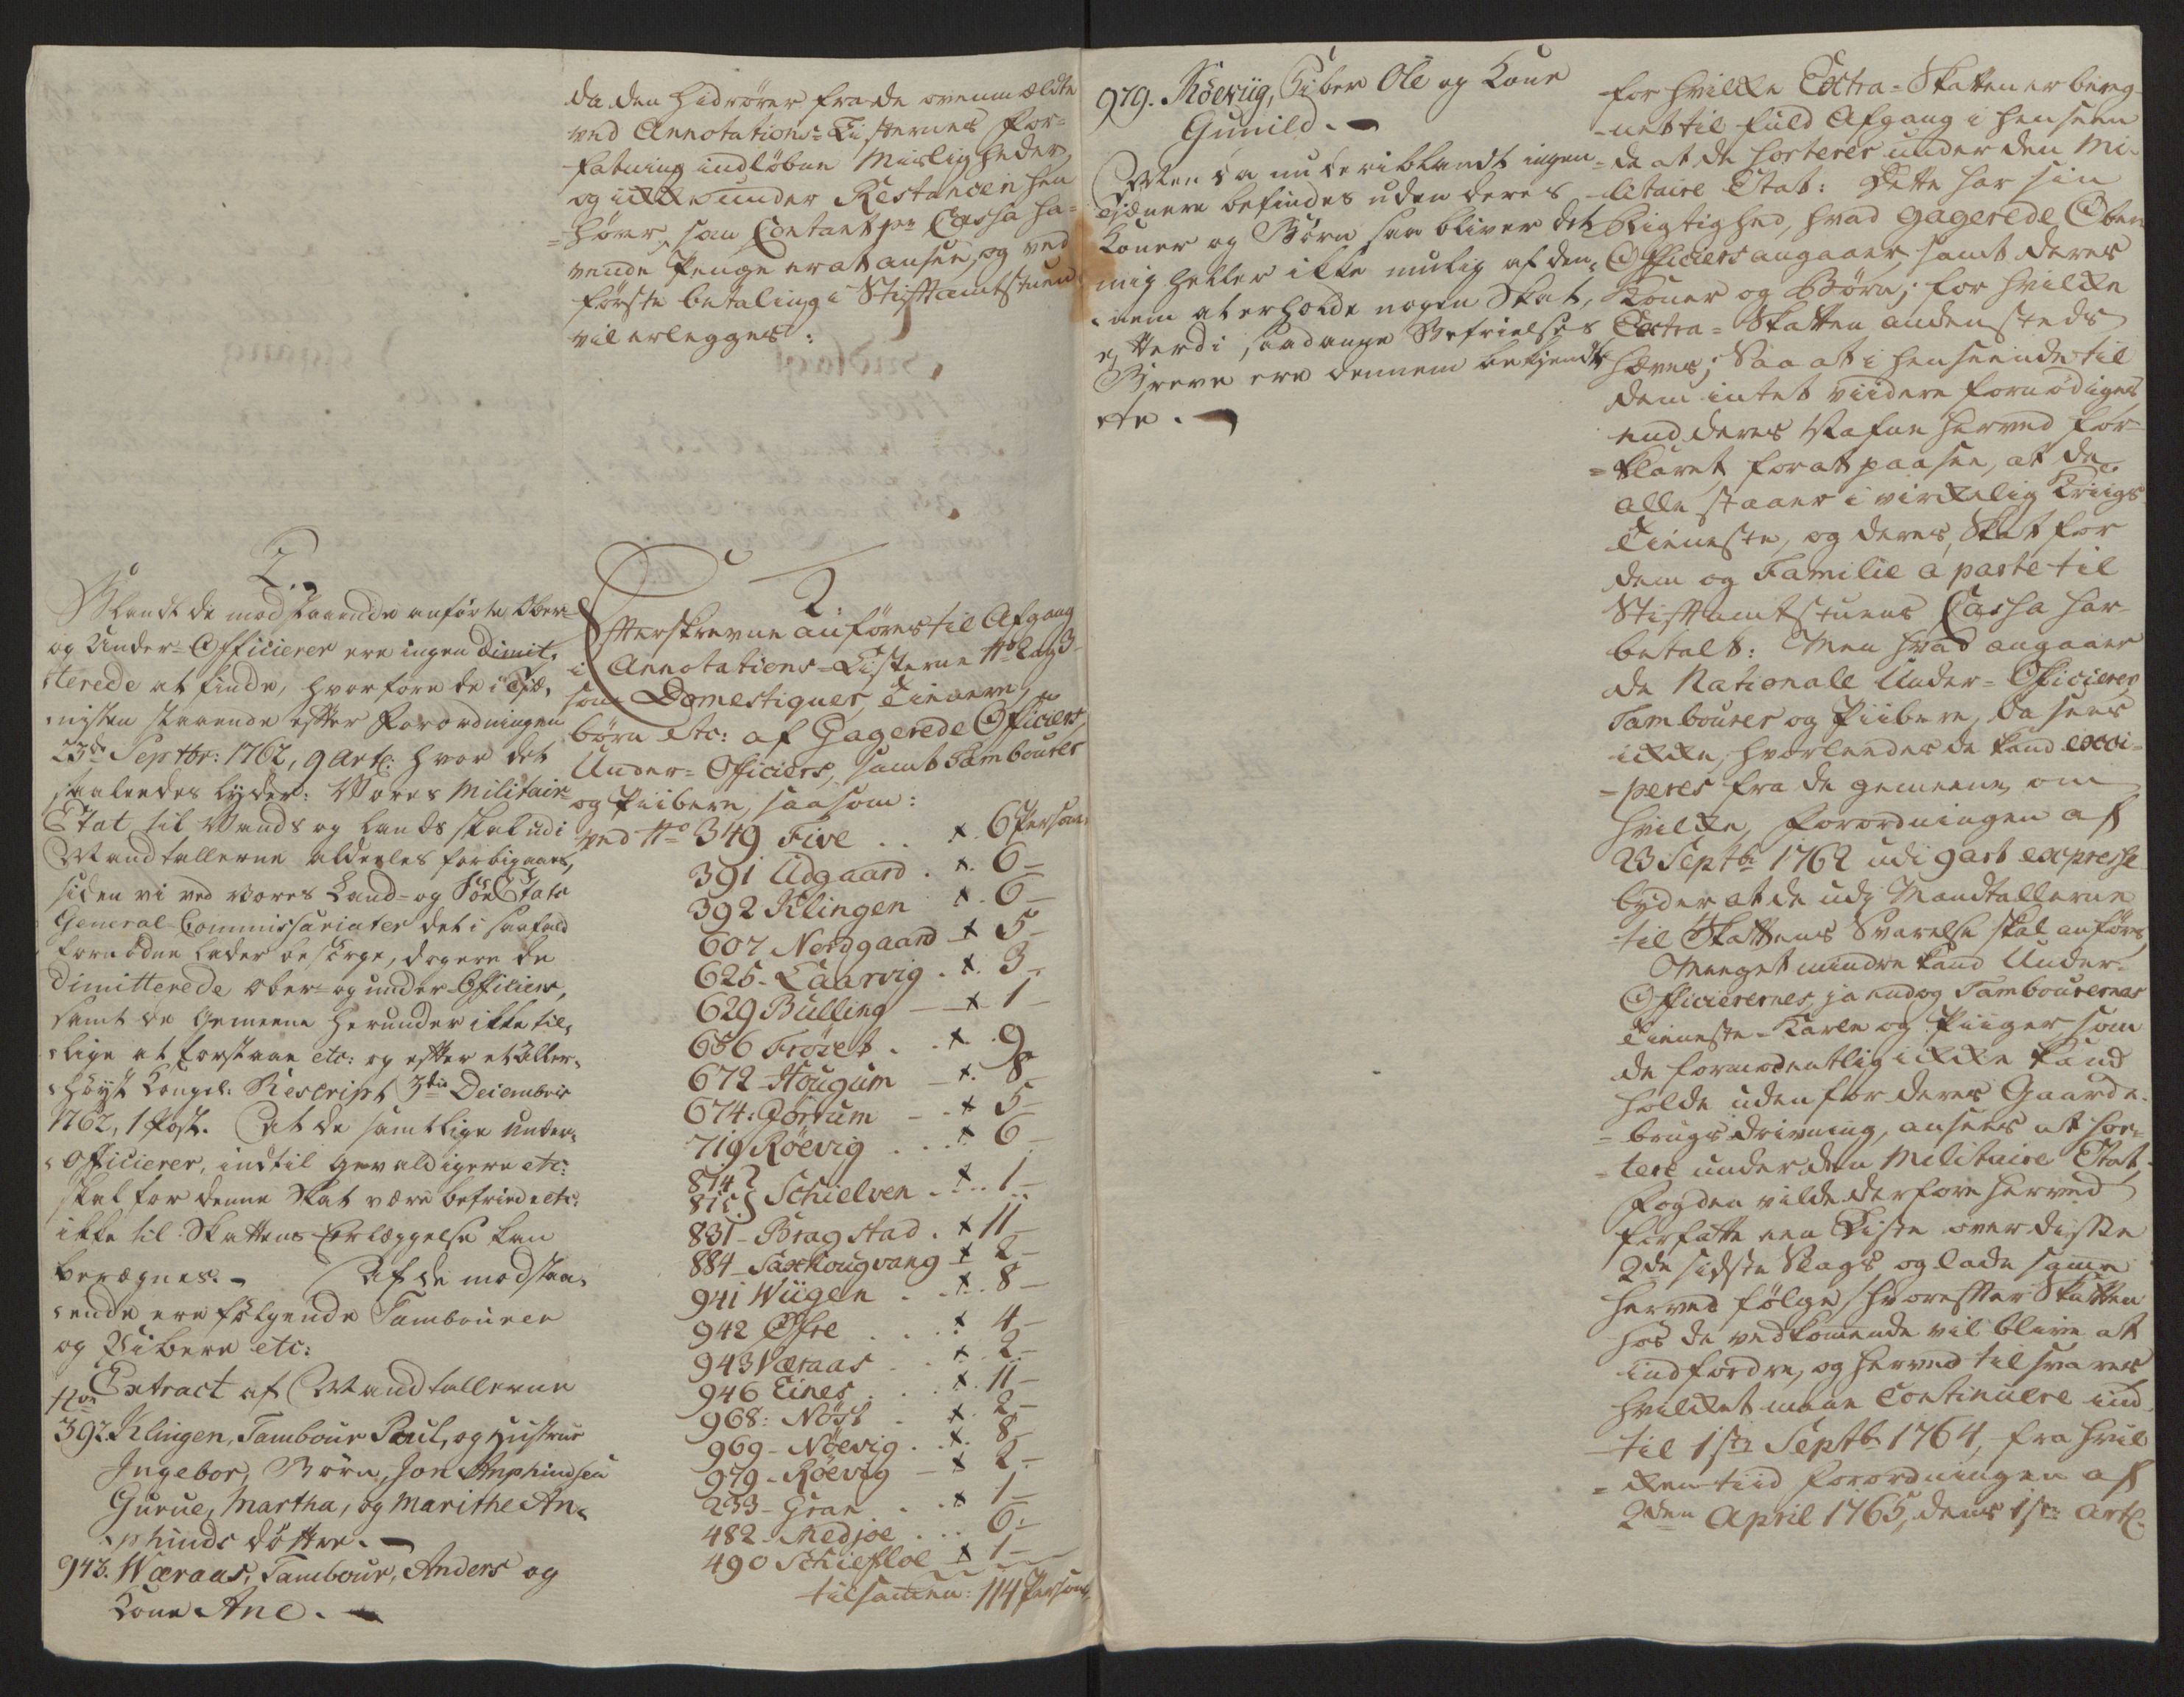 da den hidrører fra de ovenmældte
ved Annotations-Listernes for-
fatning indløbne Misligheder,
og ikke under Restancen hen
=hører, som Contant pr Cassa ha-
vende Penge er at ansee, og ved
første betaling i Stiftamtstuen
vil erlegges:
2.
Blandt de modstaaende anførte Ober-
og Under-Officierer ere ingen dimit-
terede at finde, hvorfore de i Tie-
nisten staaende efter Forordningen
23de Septbr: 1762, 9 Art: hvor det
saaledes lyder: Vores Militair-
Etat til Vands og Lands skal udi
Mandtallerne aldeeles forbigaaes,
siden vi ved vores Land- og Søe Etats
General-Commissariater det i saafald
fornødne lader besørge, dog ere de
dimitterede Ober- og under-Officiers,
samt de Gemeene herunder ikke til-
lige at forstaae etc: og efter et Aller-
høyst Kongel: Rescript 3die Decembris
1762, 1 Post. At de samtlige Under-
Officierer, indtil gevaldigere etc:
skal for denne Skat være befriede etc:
ikke til Skattens Erlæggelse kan
beregnes. - Af de modstaa-
ende ere følgende Tambourer
og Pibere etc:
No: Extract af Mandtallerne
392. Klingen, Tambour Poul, og Hustrue
Ingebor, Børn, Jon Amphindsen
Gurue, Martha, og Marithe An-
phinds døttre. -
943. Wæraas, Tambour, Anders og
Kone Ane. -
2.
Efterskrevne anføres til Afgang
i Annotations-Listerne No 2 og 3
som Domestiquer, Tienere,
børn etc: af Gagerede Officiers,
Under-Officiers, samt Tambourer
og Piibere, saasom:
ved No 349 Five .. x. 6 Person:
391 Udgaard . x. 6 -
392 Klingen x. 6 -
607 Nordgaard x 5 -
625 - Laarvig . x. 3 -
629 Bulling - x 1 -
656 Frøset . . x 9
672 - Hougum - x. 8 -
674. Gørtum - - x 5 -
719 Røevig . . . x 6 -
814
815 } Schielven . x .. 1 -
831 - Bragstad . x 11 -
884 - Saxhougvang x 2 -
941 Wiigen . . x. 8 -
942 Øfre . . . x 4 -
943 Væraas . . x 2 -
946 Eines . . . x. 11 -
968: Nøst . x. 2 -
969 - Nøevig . . x. 8 -
979 - Røevig - x 2 -
233 - Gran . . x 1 -
482 - Medjoe . . . 6 -
490 Schiefloe x 1 -
tilsamen: 114 Persone
979. Røeviig, Piber Ole og Kone
Gunild. -
Men da nu deriblandt ingen
Tienere befindes uden deres
Koner og Børn, saa bliver det
mig heller ikke mulig af den-
nem at erholde nogen Skat,
efterdi saadanne Befrielses
Breve ere dennem bekiendt-
ete. -
for hvilke Extra-Skatten er bereg-
-net til fuld Afgang i henseen
=de at de sorterer under den Mi-
litaire Etat: Dette har sin
Rigtighed, hvad gagerede Ober
Officiers angaaer, samt deres
Koner og Børn; for hvilke
Extra-Skatten andensteds
hæves; Saa at i henseende til
dem intet viidere fornødiges
end deres Nafne herved for-
=klaret, for at paasee, at de
alle staaer i virkelig Kriigs
Tieneste, og deres Skat for
dem og Familie a parte til
Stiftamtstuens Cassa har
betalt: Men hvad angaaer
de Nationale Under-Officierer,
Tambourer og Piibere, da sees
ikke, hvorleedes de kand exci-
=peres fra de gemeene, om
hvilke, Forordningen af
23 Septbr 1762 udi 9 art expresse
byder at de udj Mandtallerne
til Skattens Svarelse skal anføres,
Meeget mindre kand Under-
Officierernes, ja endog Tambourernes
Tieneste-Karle og Piiger, som
de formodentlig ikke kand
holde uden for deres Gaards-
=brugs drivning, ansees at sor-
=tere under den Militaire Etat,
Fogden vilde derfore herved
forfatte een Liste over disse
2de sidste Slags og lade samme
herved følge, hvorefter Skatten
hos de vedkomende vil blive at
indfordre, og herved tilsvares
hvilket maae Continuere ind-
til 1ste Septb 1764, fra hvil
=ken tiid Forordningen af
2den April 1765, dens 1ste Art.